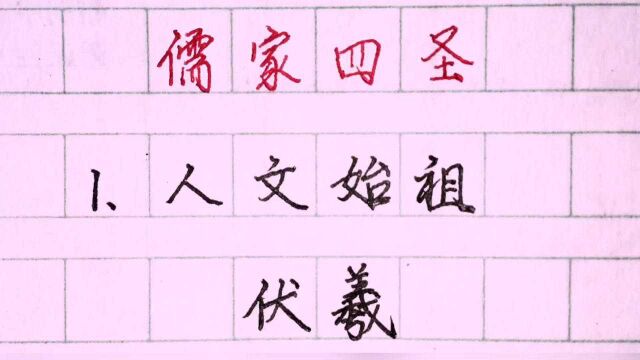 儒家四圣
1、人文始祖
伏羲